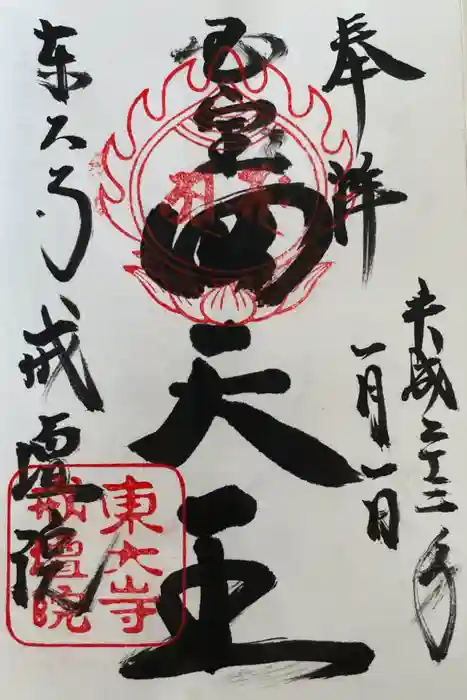 奉拝
平成二十二年
一月一日
国宝
四天王
東大寺戒壇院
東大寺
戒壇院